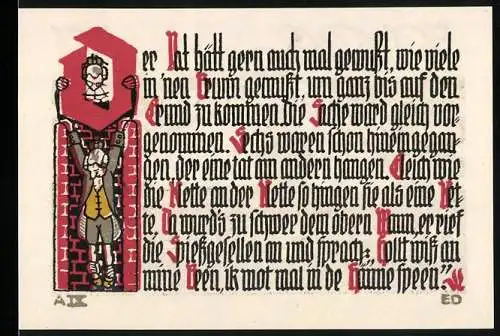 Der Rat hätt gern auch mal gewußt, wie viele
in 'nen Brunn gemußt, um ganz bis auf den
Grund zu kommen. Die Sache ward gleich vor-
genommen. Sechs waren schon hinein gegan-
gen, der eine tat am andern hangen. Gleich wie
die Klette an der Klette so hingen sie als eine Ket-
te. Da wurd's zu schwer dem obern Mann, er rief
die Spießgesellen an und sprach: Hollt wiß an
mine Been, ik mot mal in de Hänne speen."
A IX
ED